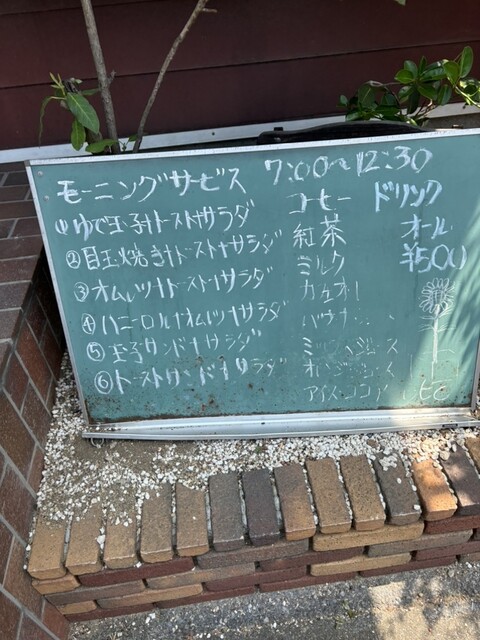 モーニングサービス 7:00~12:30
①ゆで玉子+トースト+サラダ コーヒー ドリンク
②目玉焼き+トースト+サラダ 紅茶 オール
③オムレツ+トースト+サラダ ミルク ¥500
④ハニーロール+オムレツ+サラダ カフェオレ
⑤玉子サンド+サラダ
⑥トーストサンド+サラダ ミックスジュース
オレンジジュース
アイスココア